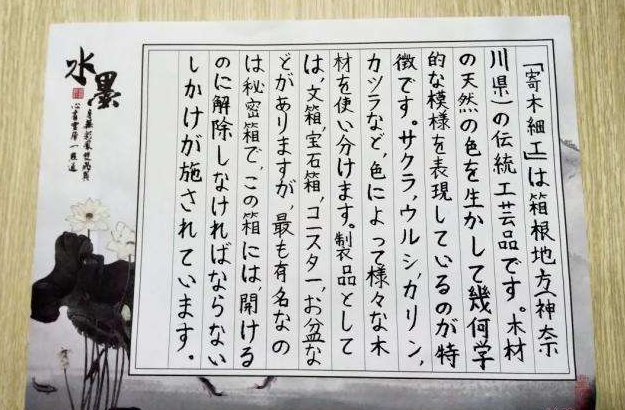 「寄木細工」は箱根地方(神奈
川県)の伝統工芸品です。木材
の天然の色を生かして幾何学
的な模様を表現しているのが特
徴です。サクラ,ウルシ,カリン,
カツラなど,色によって様々な木
材を使い分けます。製品として
は,文箱,宝石箱,コースター,お盆な
どがありますが,最も有名なの
は秘密箱で,この箱には,開ける
のに解除しなければならない
しかけが施されています。
水墨